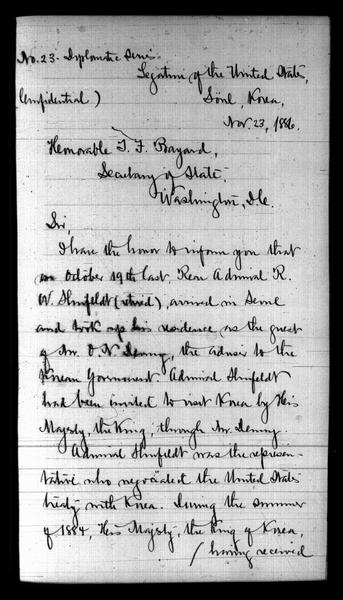 No. 23. Diplomatic Series
Legation of the United States,
Confidential)
Söul, Korea,
Nov. 23, 1886.
Honorable T. F. Bayard,
Secretary of State,
Washington, D.C.
Sir,
I have the honor to inform you that
on October 19th last, Rear Admiral R.
W. Shufeldt (retired), arrived in Seoul
and took up his residence as the guest
of Mr. O. N. Denny, the adviser to the
Korean Government. Admiral Shufeldt
had been invited to visit Korea by His
Majesty, the King, through Mr. Denny.
Admiral Shufeldt was the represen-
tative who negociated the United States
treaty with Korea. During the summer
of 1884, His Majesty, the King of Korea,
/ having received